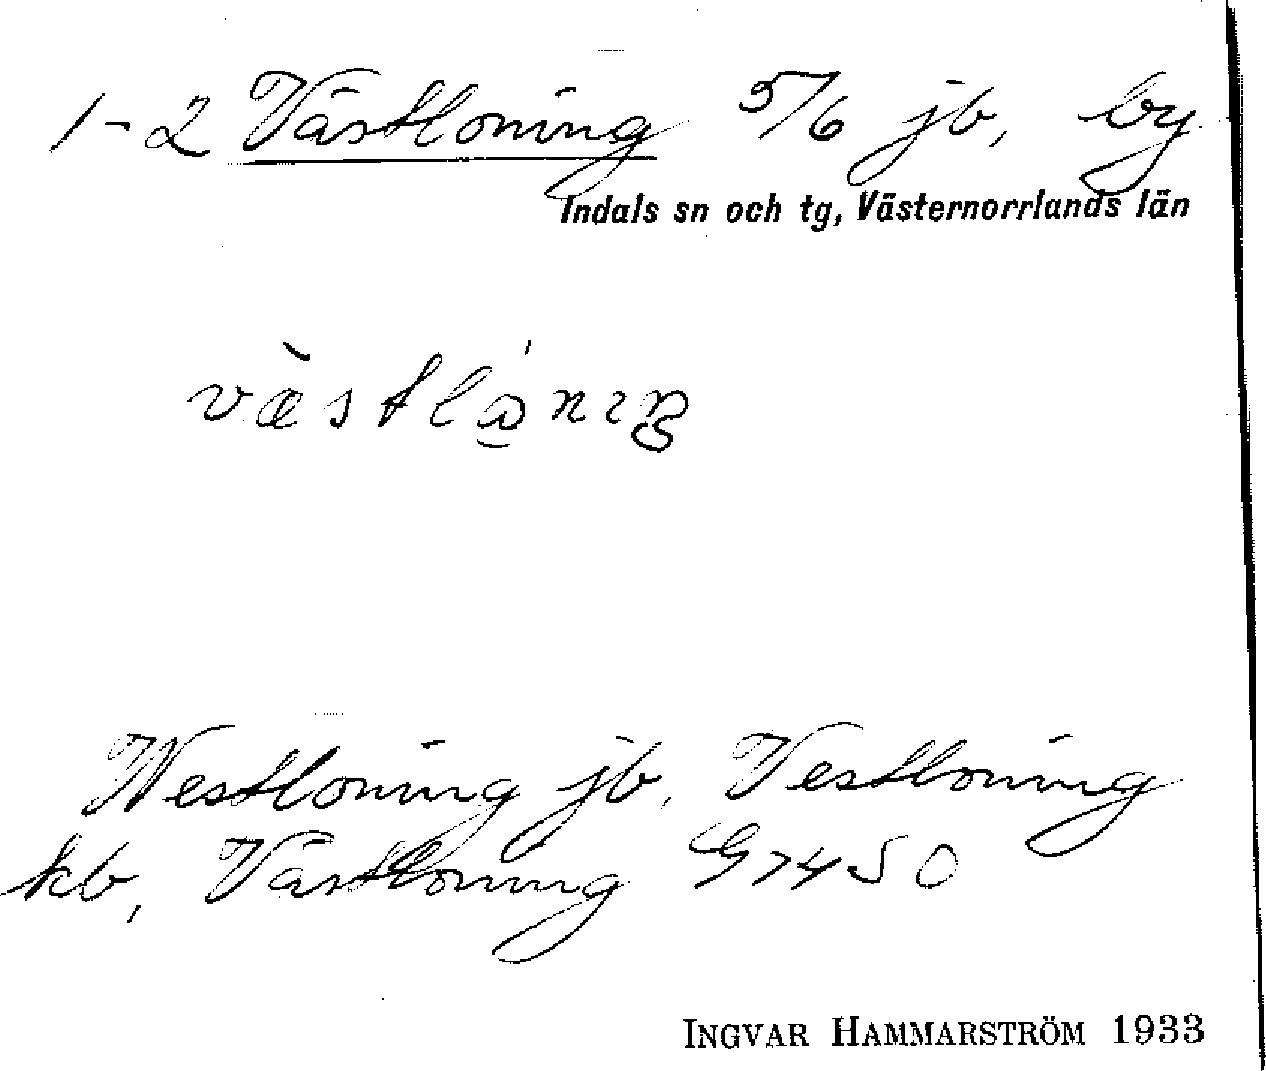 1-2 Västloning 5/6 jb, by
Indals sn och tg, Västernorrlands län
væ̀stlån̲ıŋ
Westloning jb, Vestloning
kb, Västloning G7450
INGVAR HAMMARSTRÖM 1933